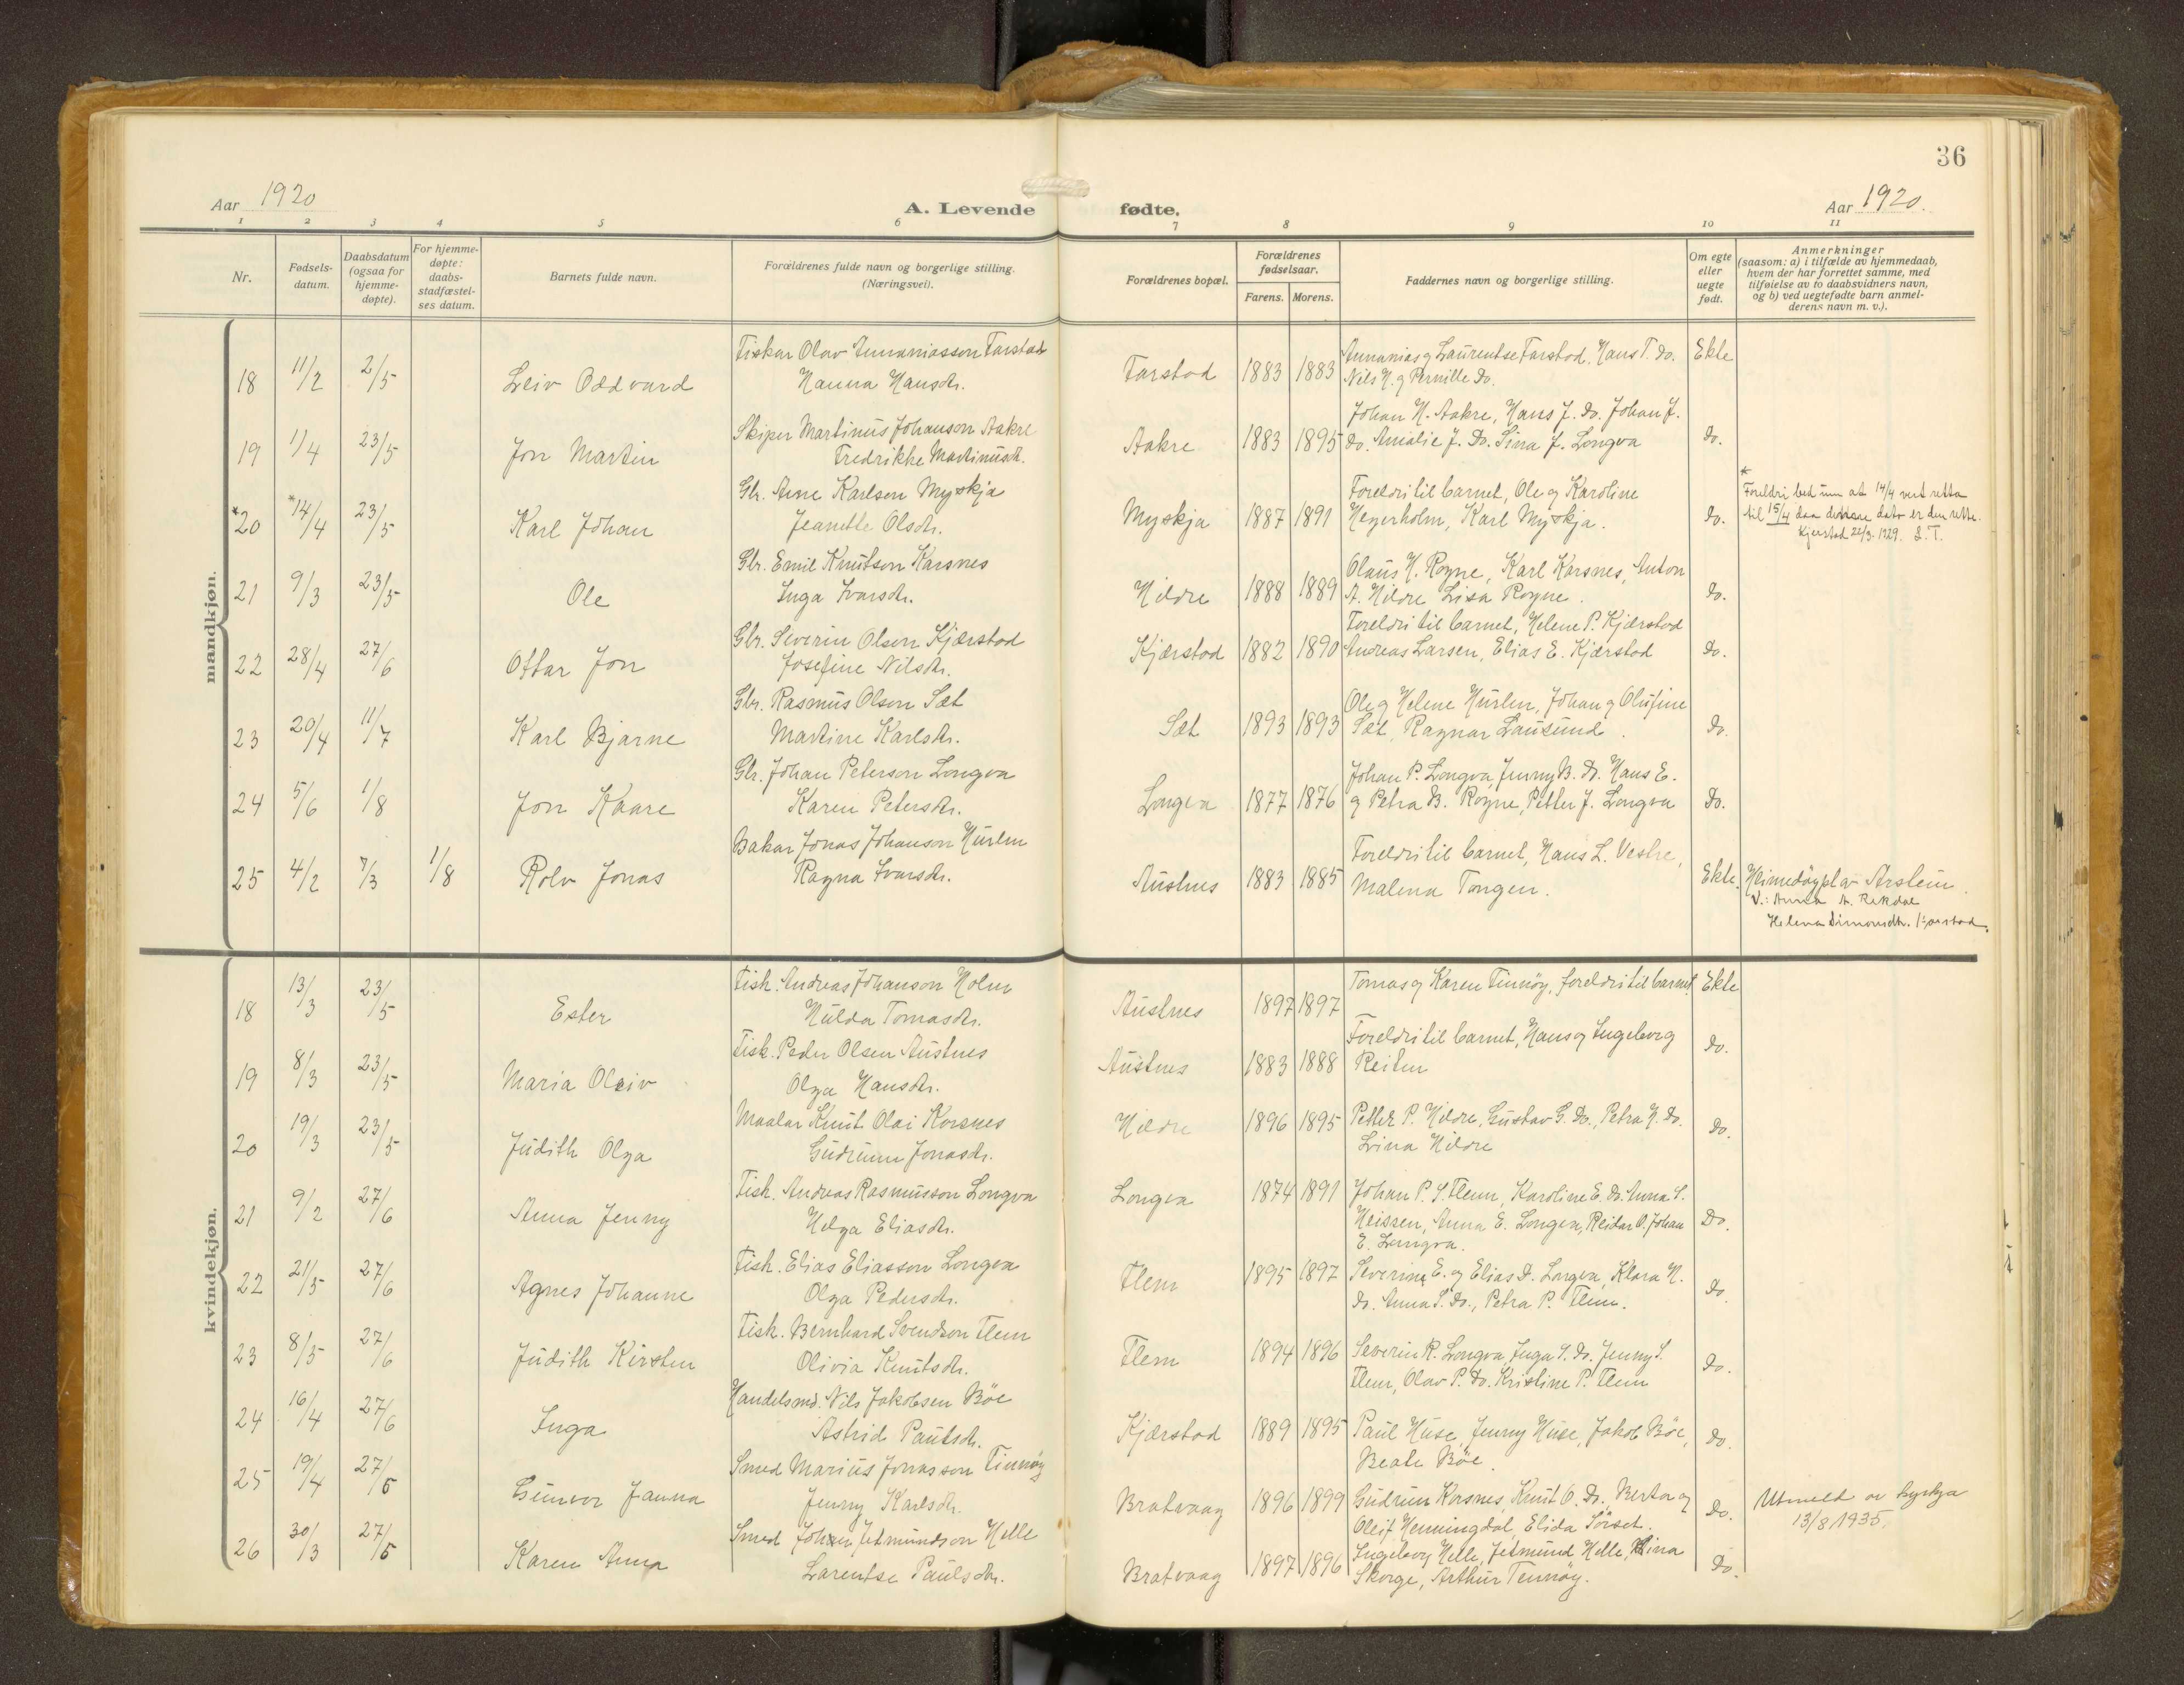 36
Aar 1920
A. Levende fødte.
Aar 1920.
1 2 3 4 5 6 7 8 9 10 11
Nr.
Fødsels-
datum.
Daabsdatum
(ogsaa for
hjemme-
døpte).
For hjemme-
døpte:
daabs-
stadfæstel-
ses datum.
Barnets fulde navn.
Forældrenes fulde navn og borgerlige stilling.
(Næringsvei).
Forældrenes bopæl.
Forældrenes
fødselsaar.
Farens. Morens.
Faddernes navn og borgerlige stilling.
Om egte
eller
uegte
født.
Anmerkninger
(saasom: a) i tilfælde av hjemmedaab,
hvem der har forrettet samme, med
tilføielse av to daabsvidners navn,
og b) ved uegtefødte barn anmel-
derens navn m. v.).
mandkjøn.
Fiskar Olav Annaniasson Farstad
18 11/2 2/5 Leiv Oddvard
Hanna Hansdr.
Farstad 1883 1883
Annanias og Laurentse Farstad. Hans T. do.
Nils H. og Pernille do.
Ekte
Skiper Martinus Johanson Aakre
19 1/4 23/5 Jon Martin
Fredrikke Martinusdr.
Aakre 1883 1895
Johan H. Aakre, Hans J. do. Johan J.
do. Amalie J. do. Sina J. Longva
do.
Gbr. Arne Karlsen Myskja
*20 *14/4 23/5 Karl Johan
Jeanette Olsdr.
Myskja 1887 1891
Foreldri til barnet, Ole og Karoline
Hegerholm, Karl Myskja.
do.
*
Foreldri bed um at 14/4 vert retta
til 15/4 daa denne dato er den rette.
Kjerstad 22/3. 1929. S. T.
Gbr. Emil Knutson Karsnes
21 9/3 23/5 Ole
Inga Ivarsdr.
Hildre 1888 1889
Olaus H. Rogne, Karl Karsnes, Anton
A. Hildre Lisa Rogne.
do.
Gbr. Severin Olsen Kjærstad
22 28/4 27/6 Ottar Jon
Josefine Nilsdr.
Kjærstad 1882 1890
Foreldri til barnet, Helene P. Kjærstad
Andreas Larsen, Elias E. Kjærstad
do.
Gbr. Rasmus Olson Sæt
23 20/4 11/7 Karl Bjarne
Martine Karlsdr.
Sæt 1893 1893
Ole og Helene Hurlen, Johan og Olufine
Sæt, Ragnar Lausund.
do.
Gbr. Johan Peterson Longva
24 5/6 1/8 Jon Kaare
Karen Petersdr.
Longva 1877 1876
Johan P. Longva, Jenny B. do. Hans E.
og Petra B. Rogne, Petter J. Longva
do.
Bakar Jonas Johanson Hurlen
25 4/2 7/3 1/8 Rolv Jonas
Ragna Ivarsdr.
Austnes 1883 1885
Foreldri til barnet, Hans L. Vestre,
Malena Tongen.
Ekte.
Heimedøypt av Arstein.
V.: Anna A. Rekdal
Helena Simonsdtr. Kjærstad.
kvindekjøn.
Fisk. Andreas Johanson Holm
18 13/3 23/5 Ester
Hulda Tomasdr.
Austnes 1897 1897
Tomas og Karen Finnøy, foreldri til barnet
Ekte
Fisk. Peder Olsen Austnes
19 8/3 23/5 Maria Olaiv
Olga Hansdr.
Austnes 1883 1888
Foreldri til barnet, Hans og Ingeborg
Reiten
do.
Maalar Knut Olai Korsnes
20 19/3 23/5 Judith Olga
Gudrunn Jonasdr.
Hildre 1896 1895
Petter P. Hildre, Gustav G. do., Petra H. do.
Lina Hildre
do.
Fisk. Andreas Rasmusson Longva
21 9/2 27/6 Anna Jenny
Helga Eliasdr.
Longva 1874 1891
Johan P. S. Flem, Karoline E. do. Anna S.
Heissen, Anna E. Longva, Reidar O. Johan
E. Longva.
do.
Fisk. Elias Eliasson Longva
22 21/5 27/6 Agnes Johanne
Olga Pedersdr.
Flem 1895 1897
Severine E. og Elias D. Longva, Klara H.
do. Anna S. do., Petra P. Flem.
do.
Fisk. Bernhard Svendson Flem
23 8/5 27/6 Judith Kirsten
Olivia Knutsdr.
Flem 1894 1896
Severin R. Longva, Inga S. do. Jenny S.
Flem, Olav P. do. Kristine P. Flem
do.
Handelsmd. Nils Jakobsen Bøe
24 16/4 27/6 Inga
Astrid Paulsdr.
Kjærstad 1889 1895
Paul Huse, Jenny Huse, Jakob Bøe,
Beate Bøe.
do.
Smed Marius Jonasson Finnøy
25 19/4 27/6 Gunvor Janna
Jenny Karlsdr.
Bratvaag 1896 1899
Gudrun Korsnes, Knut O. do., Berta og
Oleif Henningdal, Elida Sørset.
do.
Utmeld av kyrkja
13/8 1935.
Smed Johan Jetmundson Helle
26 30/3 27/6 Karen Anna
Larentse Paulsdr.
Bratvaag 1897 1896
Ingeborg Helle, Jetmund Helle, Lina
Skorge, Arthur Tennøy.
do.